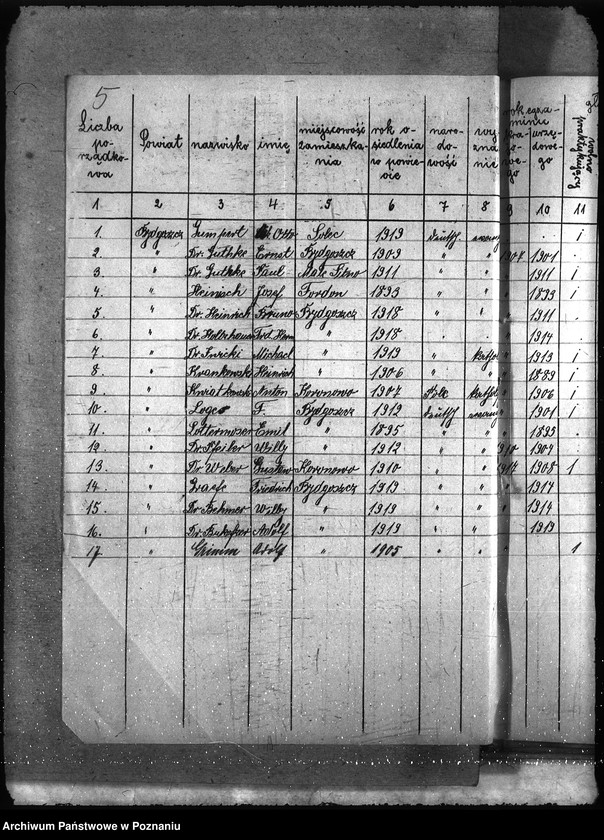 5
Liczba porządkowa | Powiat | nazwisko | imię | miejscowość zamieszkania | rok osiedlenia w powiecie | narodowość | wyznanie | rok egzaminu | urzędowego | praktykujący
1 | 2 | 3 | 4 | 5 | 6 | 7 | 8 | 9 | 10 | 11
1. | Bydgoszcz | Gumpert | Otto | Solec | 1919 | deutsch | ewang | 1
2. | " | Dr. Guthke | Ernst | Bydgoszcz | 1909 | " | " | 1907 | 1901
3. | " | Dr. Guthke | Paul | 1911 | " | " | " | 1911 | 1
4. | " | Heinisch | Josef | Fordon | 1893 | " | " | " | 1893 | 1
5. | " | Dr. Heinrich | Bruno | Bydgoszcz | 1918 | " | " | " | 1911
6. | " | Dr. | Ferd. | " | 1918 | " | " | 1914
7. | " | Dr. | Michael | " | 1919 | " | kathol | " | 1913 | 1
8. | " | Krankowski | Heinrich | " | 1906 | " | " | " | 1889 | 1
9. | " | Kwiatkowski | Anton | Koronowo | 1907 | Pole | kathol | " | 1906 | 1
10. | " | Loges | F. | Bydgoszcz | 1912 | deutsch | ewang | " | 1901 | 1
11. | " | Lottermoser | Emil | " | 1895 | " | " | " | 1893
12. | " | Dr. | Willy | " | 1912 | " | " | 1910 | 1909
13. | " | Dr. Weber | Gustav | Koronowo | 1910 | " | " | 1908 | 1
14. | " | Graefe | Friedrich | Bydgoszcz | 1919 | " | " | " | 1914
15. | " | Dr. Behmer | Willy | " | 1919 | " | " | " | 1914
16. | " | Dr. | Adolf | " | 1919 | " | " | " | 1919
17. | " | Grimm | Adolf | " | 1905 | " | " | 1
Archiwum Państwowe w Poznaniu